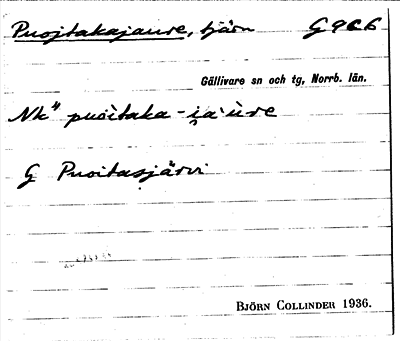 Puojtakajaure, tjärn G9C6
Gällivare sn och tg, Norrb. län.
Nk" puoìtaka-i̯a'ure
G Puoitasjärvi
BJÖRN COLLINDER 1936.